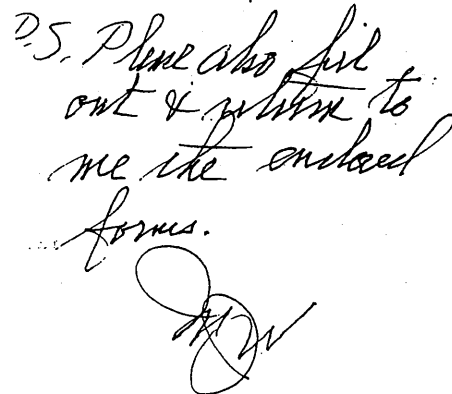 P.S. Please also fill
out & return to
me the enclosed
forms.